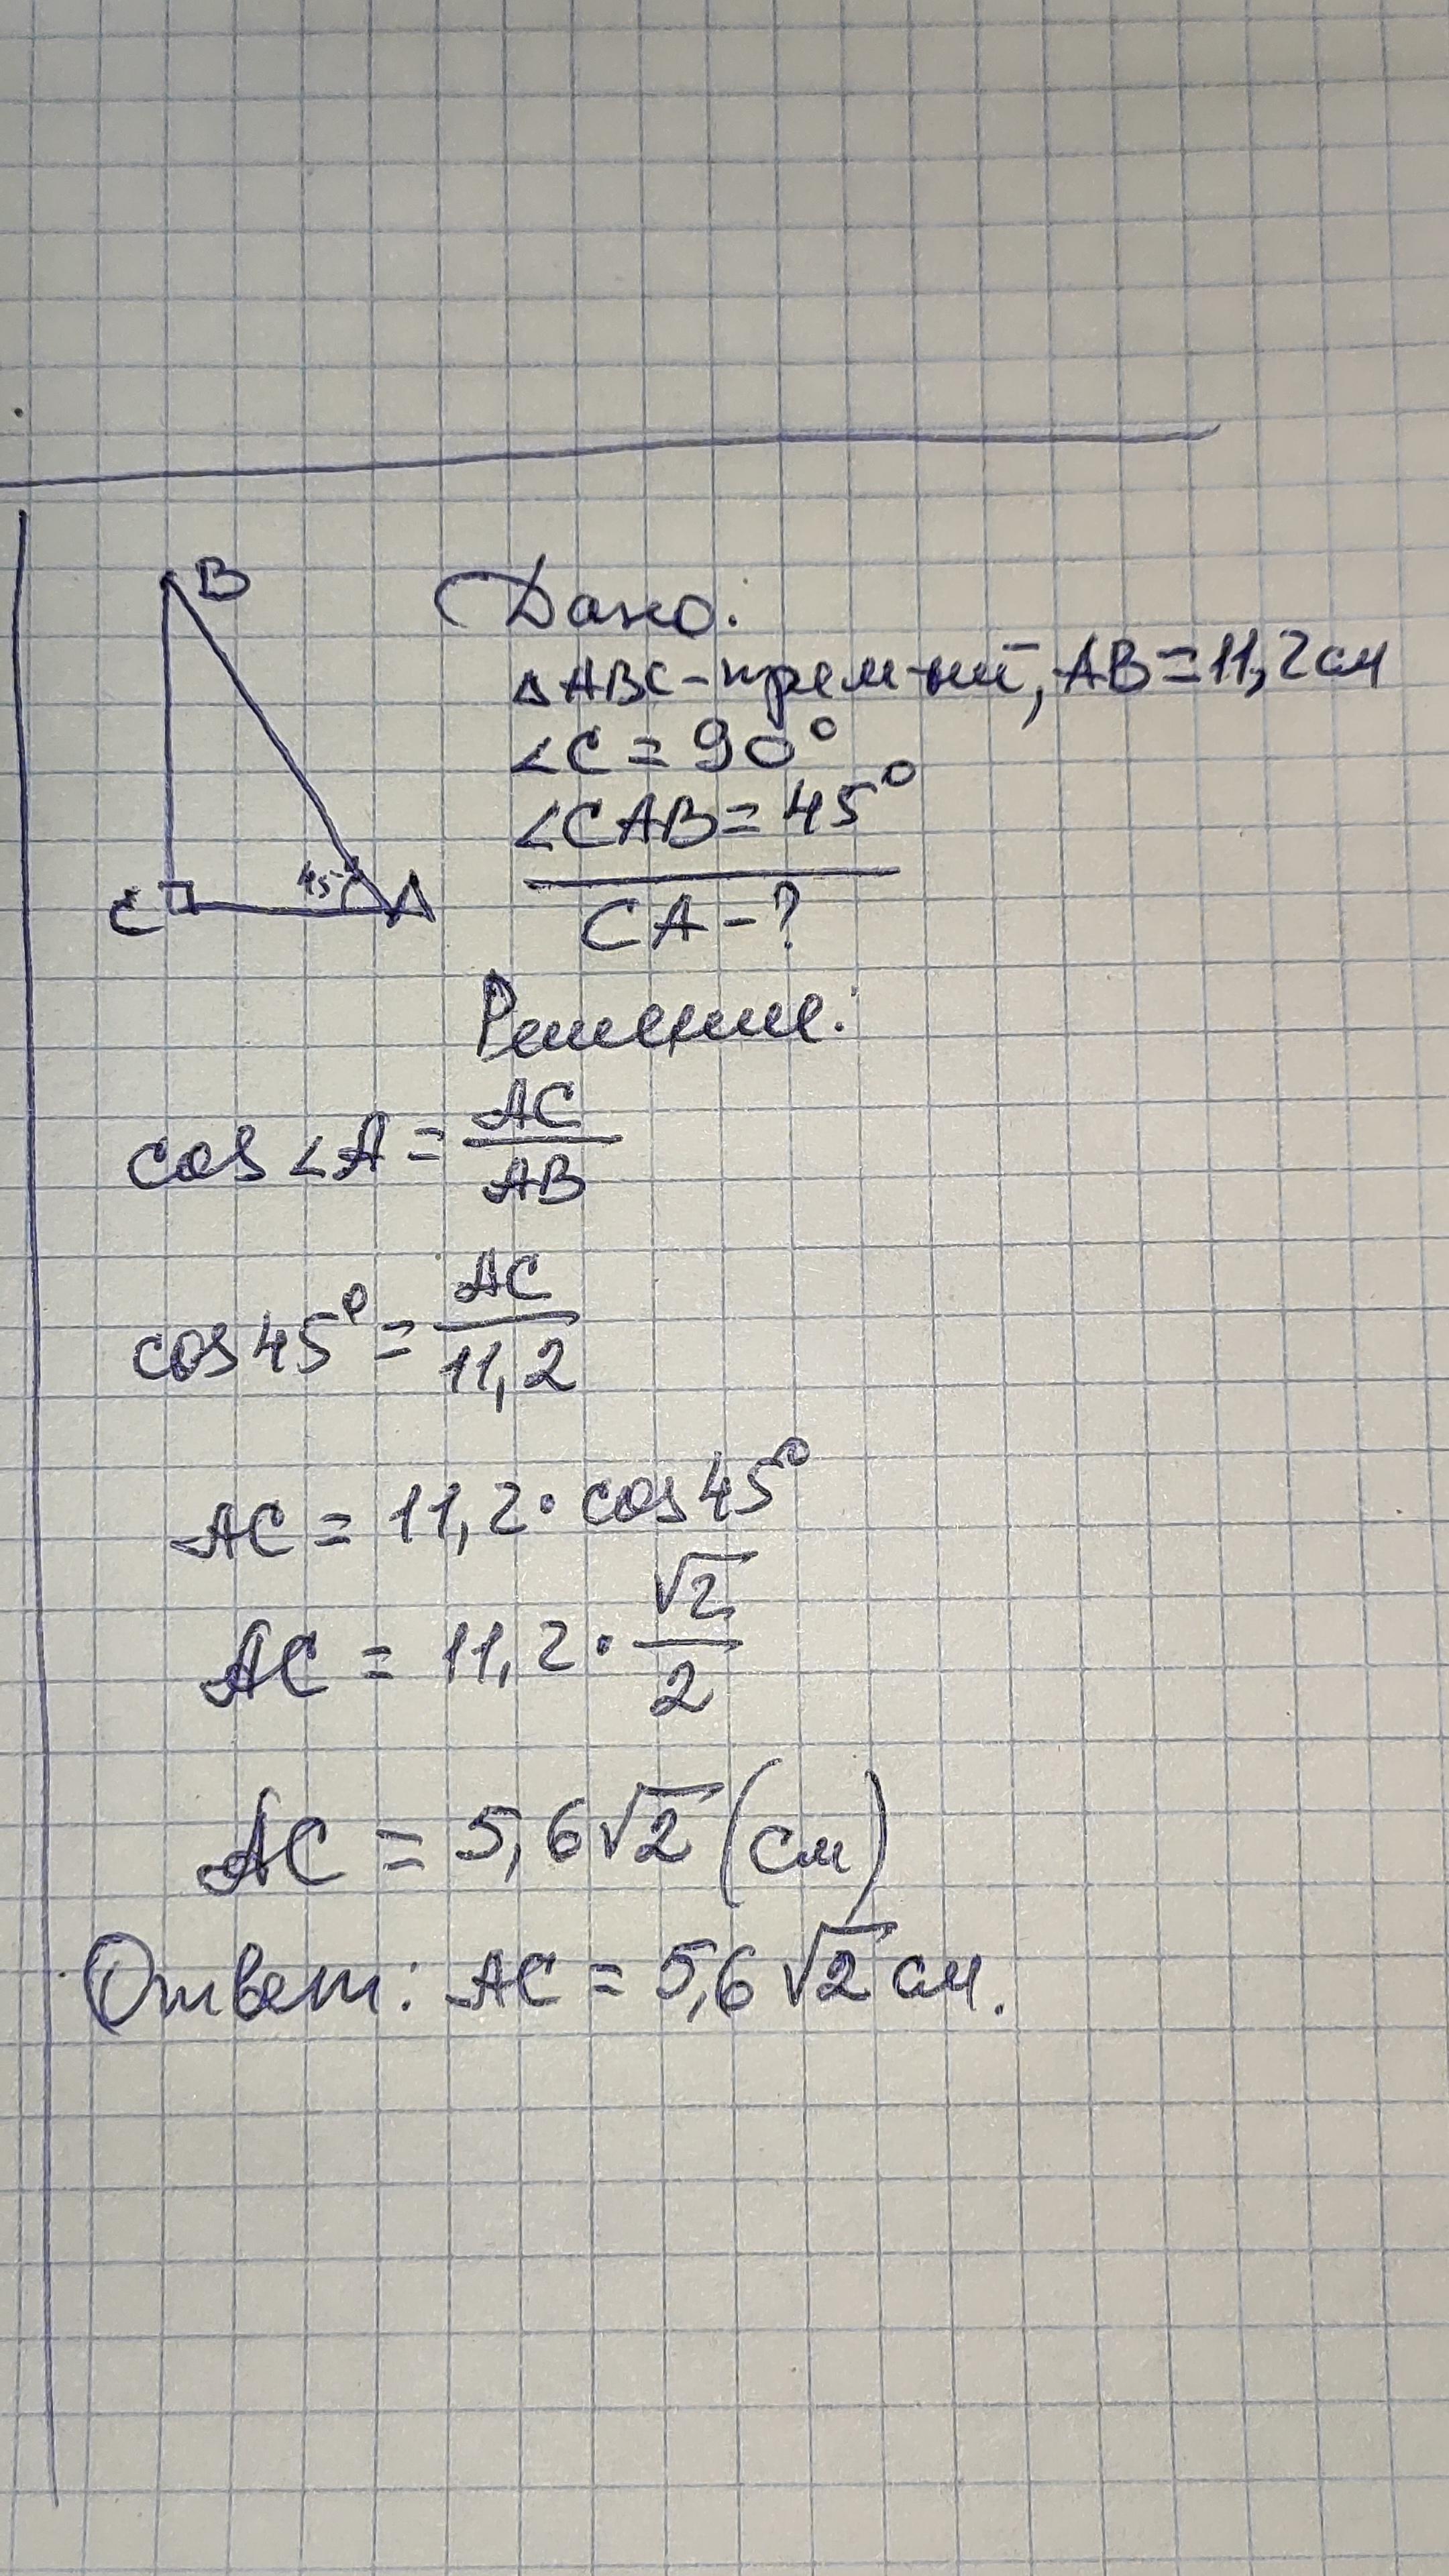 B
C
45°
A
Дано:
△ABC - прям-ный, AB = 11,2 см
∠C = 90°
∠CAB = 45°
CA - ?
Решение:
cos ∠A = AC/AB
cos 45° = AC/11,2
AC = 11,2 · cos 45°
AC = 11,2 · √2/2
AC = 5,6√2 (см)
Ответ: AC = 5,6√2 см.